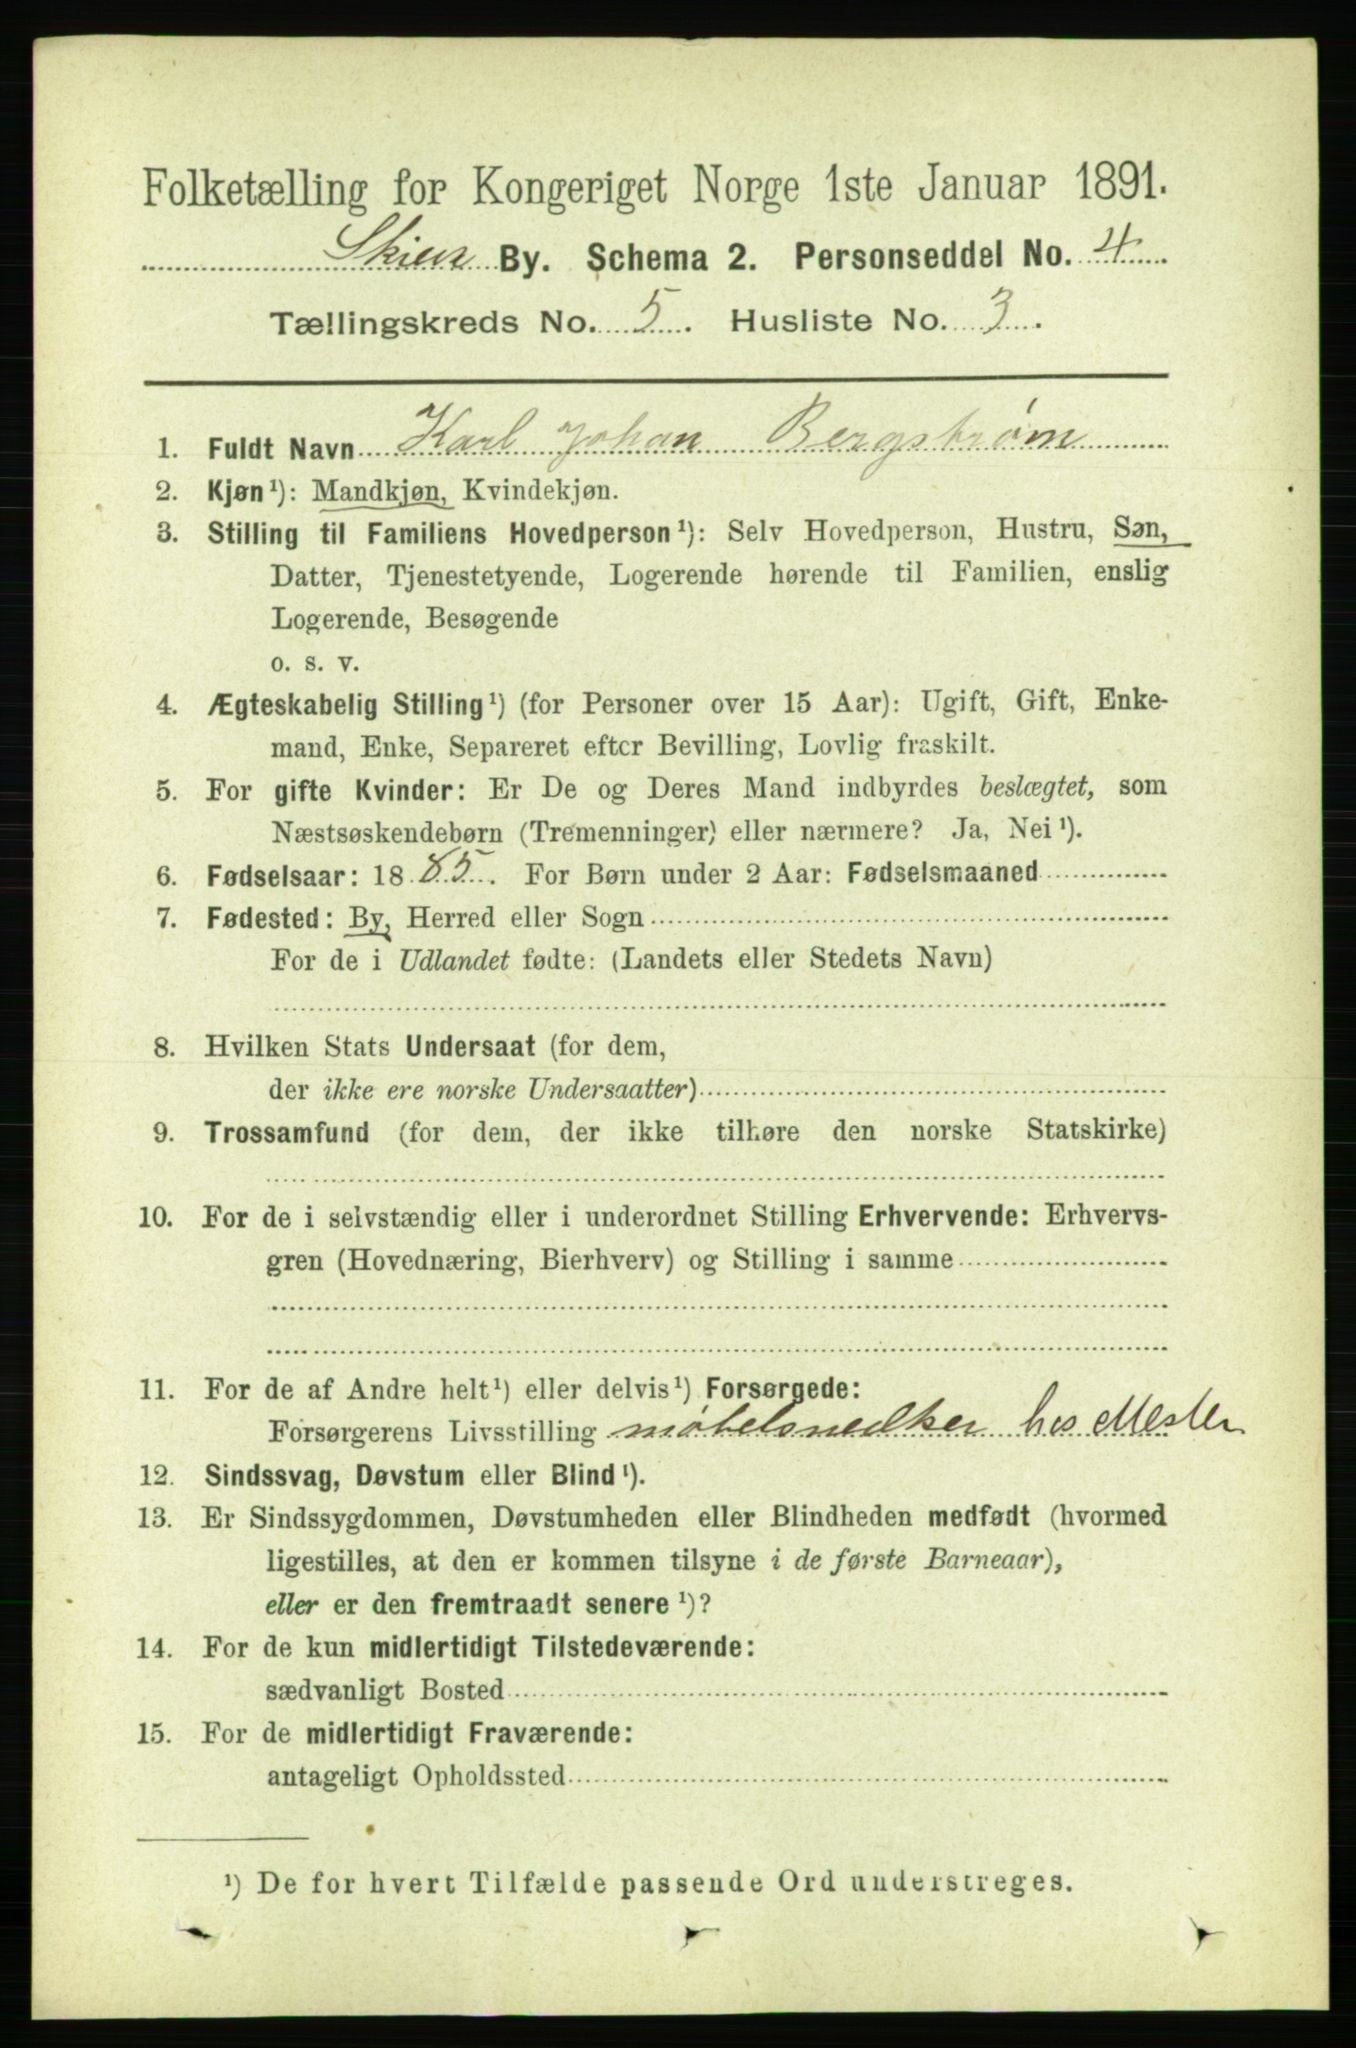 Folketælling for Kongeriget Norge 1ste Januar 1891.
Skien By. Schema 2. Personseddel No. 4
Tællingskreds No. 5. Husliste No. 3.
1. Fuldt Navn Karl Johan Bergstrøm
2. Kjøn¹): Mandkjøn, Kvindekjøn.
3. Stilling til Familiens Hovedperson¹): Selv Hovedperson, Hustru, Søn,
Datter, Tjenestetyende, Logerende hørende til Familien, enslig
Logerende, Besøgende
o. s. v.
4. Ægteskabelig Stilling¹) (for Personer over 15 Aar): Ugift, Gift, Enke-
mand, Enke, Separeret efter Bevilling, Lovlig fraskilt.
5. For gifte Kvinder: Er De og Deres Mand indbyrdes beslægtet, som
Næstsøskendebørn (Tremenninger) eller nærmere? Ja, Nei¹).
6. Fødselsaar: 1885. For Børn under 2 Aar: Fødselsmaaned
7. Fødested: By, Herred eller Sogn
For de i Udlandet fødte: (Landets eller Stedets Navn)
8. Hvilken Stats Undersaat (for dem,
der ikke ere norske Undersaatter)
9. Trossamfund (for dem, der ikke tilhøre den norske Statskirke)
10. For de i selvstændig eller i underordnet Stilling Erhvervende: Erhvervs-
gren (Hovednæring, Bierhverv) og Stilling i samme
11. For de af Andre helt¹) eller delvis¹) Forsørgede:
Forsørgerens Livsstilling møbelsnedker hos Mester
12. Sindssvag, Døvstum eller Blind¹).
13. Er Sindssygdommen, Døvstumheden eller Blindheden medfødt (hvormed
ligestilles, at den er kommen tilsyne i de første Barneaar),
eller er den fremtraadt senere¹)?
14. For de kun midlertidigt Tilstedeværende:
sædvanligt Bosted
15. For de midlertidigt Fraværende:
antageligt Opholdssted
¹) De for hvert Tilfælde passende Ord understreges.